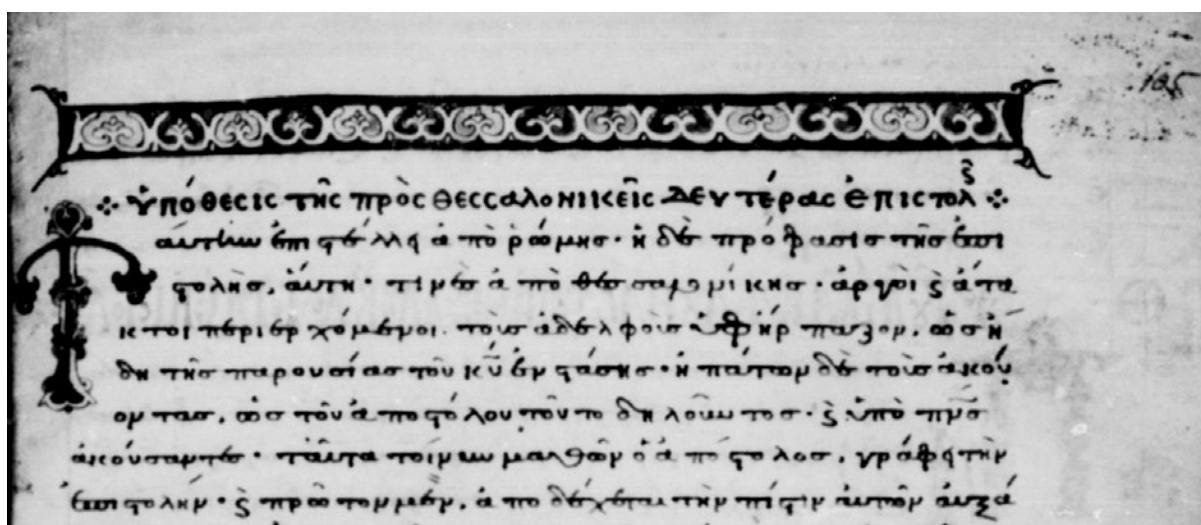 105
Ὑπόθεσις τῆς πρὸς Θεσσαλονικεῖς δευτέρας ἐπιστολ
Ταύτην ἐπιστέλλει ἀπὸ ῥώμης· ἡ δὲ πρόφασις τῆς ἐπι
στολῆς, αὕτη· τινὲς ἀπὸ θεσσαλονίκης· ἀργοὶ ϗ ἄτα
κτοι περιερχόμενοι τοὺς ἀδελφοὺς ὑφήρπαζον, ὡς ἤ
δη τῆς παρουσίας τοῦ κυ ἐνστάσης· ἠπάτων δὲ τοὺς ἀκού
οντας, ὡς τοῦ ἀποστόλου τοῦτο δηλοῦντος· ϗ ὑπὸ πνς
ἀκούσαντες· ταῦτα τοίνυν μαθὼν ὁ ἀπόστολος, γράφει τὴν
ἐπιστολήν· ϗ πρῶτον μὲν, ἀποδέχεται τὴν πίστιν αὐτῶν αὐξά